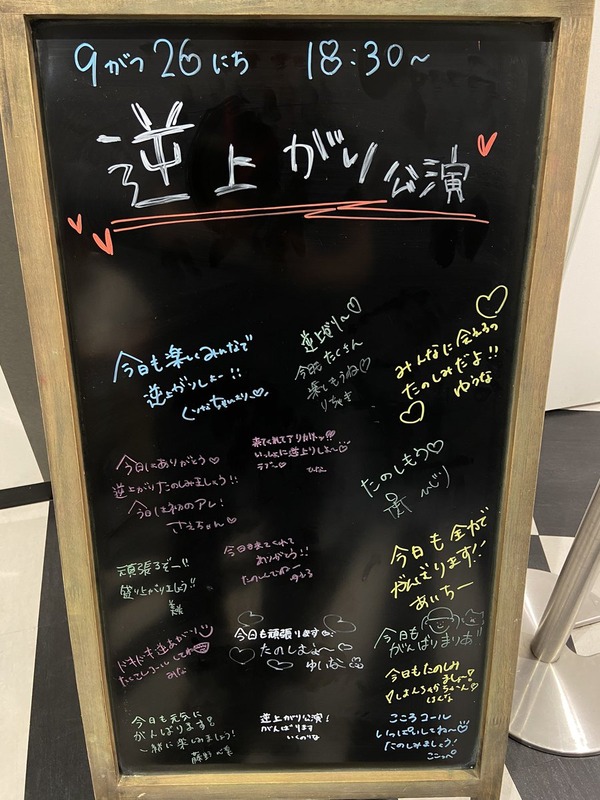 9がつ26にち 18:30～
逆上がり公演
今日も楽しくみんなで
逆上がりしよー!!
逆上がり～♡
今日もたくさん
楽しもうね♡
りちゃき
みんなに会えるの
たのしみだよ!!
ゆうな
今日はありがとう♡
逆上がりたのしみましょう!!
今日は初のアレ!
さえちゃん♡
来てくれてアリガトッ!!
いっしょに逆上りしよ～
ラブ～♡
ひな
たのしもう♡
頑張るぞー!!
盛り上がりましょう!!
今日も来てくれて
ありがとう!!
たのしんでねー
今日も全力で
がんばります!!
あいちー
ドキドキ逆上がり
みな
今日も頑張ります♡
たのしもう～
ゆいな
今日も
がんばりまりあ!!
今日もたのしみ
ましょー!
はるな
今日も元気に
がんばります!
一緒に楽しみましょう!
藤野心葉
逆上がり公演!
がんばります
いくのりな
こころコール
いっぱいしてね～♡
たのしみましょう!
ここっぺ